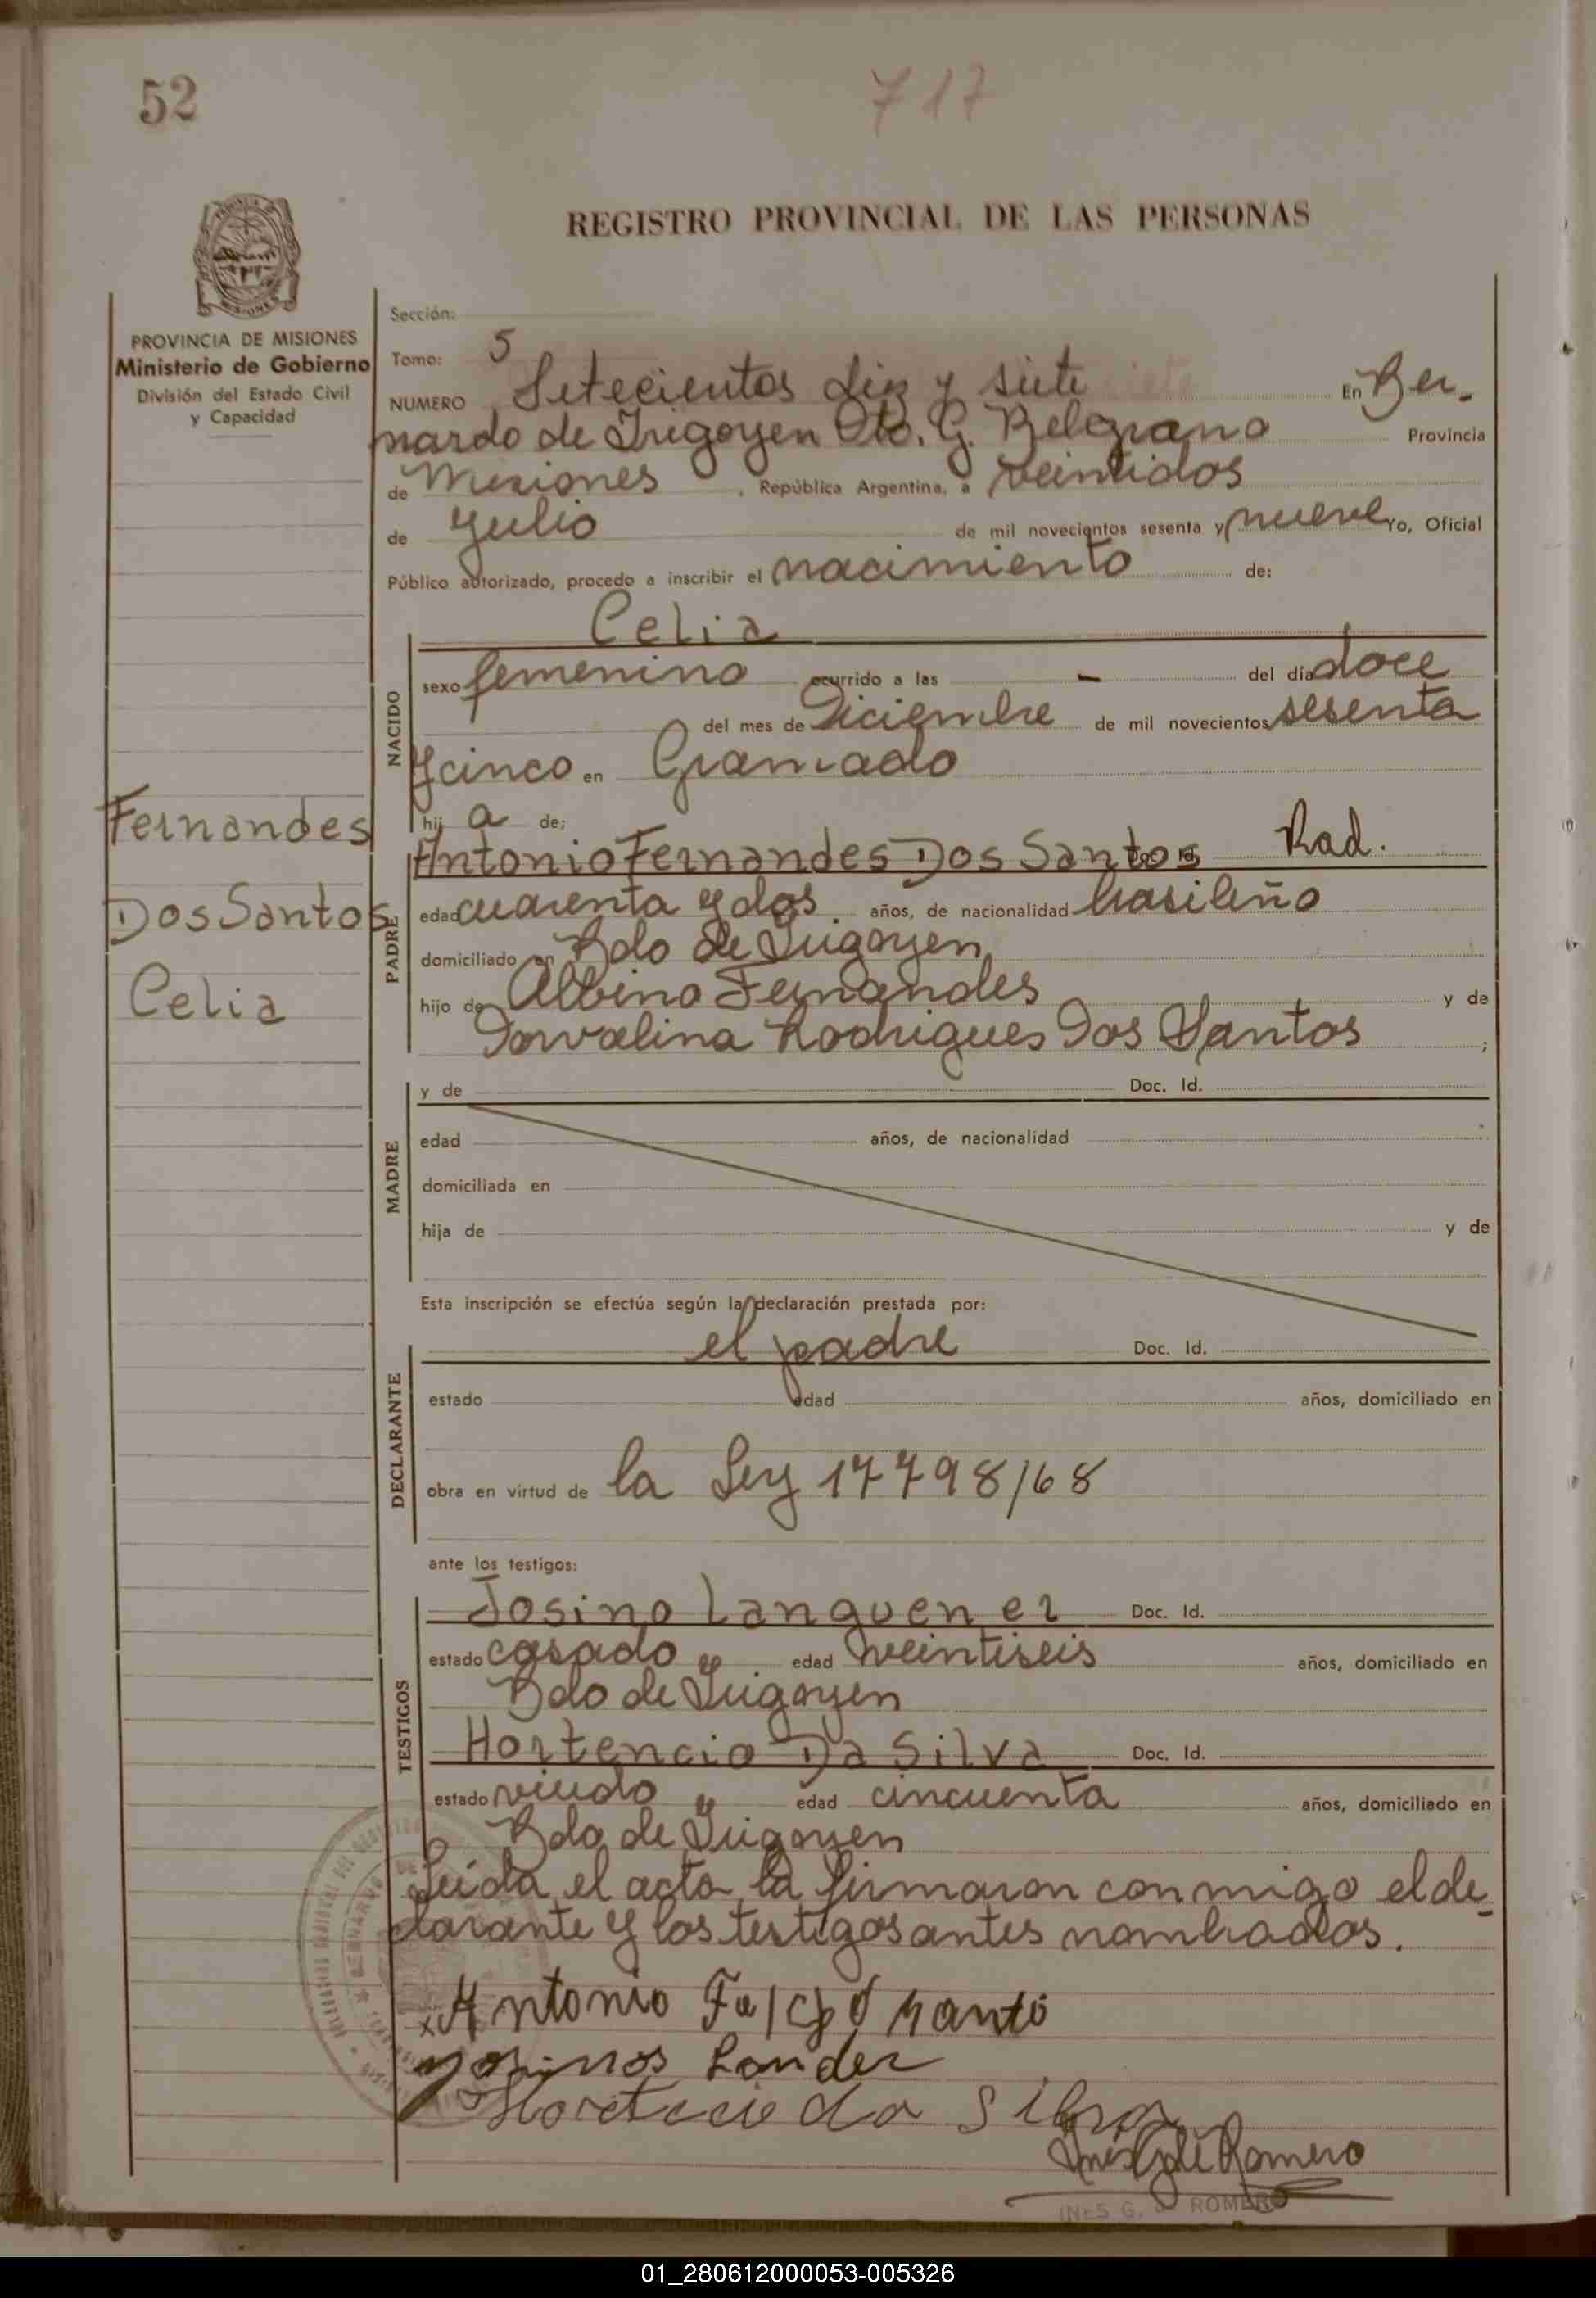 52
717
REGISTRO PROVINCIAL DE LAS PERSONAS
PROVINCIA DE MISIONES
Ministerio de Gobierno
División del Estado Civil
y Capacidad
Fernandes
Dos Santos
Celia
Sección:
Tomo: 5
NUMERO Setecientos diez y siete En Ber-
nardo de Irigoyen Dto. G. Belgrano Provincia
de Misiones, República Argentina, a veintidos
de Julio de mil novecientos sesenta y nueve Yo, Oficial
Público autorizado, procedo a inscribir el nacimiento de:
Celia
NACIDO
sexo femenino ocurrido a las - del día doce
del mes de Diciembre de mil novecientos sesenta
y cinco en Gramado
hij a de;
Antonio Fernandes Dos Santos Rad.
PADRE
edad cuarenta y dos años, de nacionalidad brasileño
domiciliado en Bdo de Irigoyen
hijo de Albino Fernandes y de
Dorvalina Rodrigues Dos Santos ;
y de Doc. Id.
MADRE
edad años, de nacionalidad
domiciliada en
hija de y de
Esta inscripción se efectúa según la declaración prestada por:
el padre Doc. Id.
DECLARANTE
estado edad años, domiciliado en
obra en virtud de la Ley 17798/68
ante los testigos:
Josino Languener Doc. Id.
TESTIGOS
estado casado y edad veintiseis años, domiciliado en
Bdo de Irigoyen
Hortencio Da Silva Doc. Id.
estado viudo y edad cincuenta años, domiciliado en
Bdo de Irigoyen
Leida el acta la firmaron conmigo el de-
clarante y los testigos antes nombrados.
Antonio
Lander
da Silva
de Romero
INES G. ROMERO
01_280612000053-005326